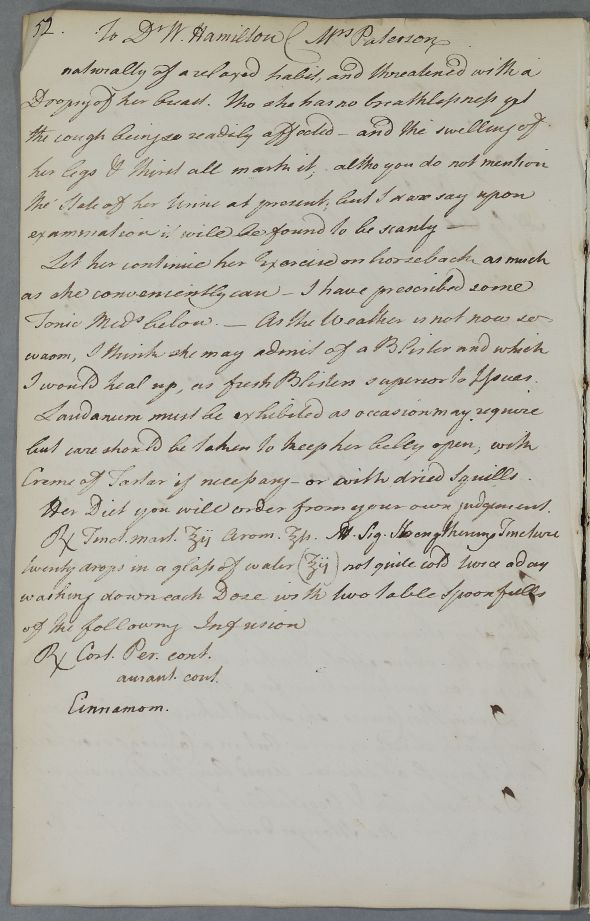 52.
To Dr W. Hamilton ( Mrs Paterson
naturally of a relaxed habit, and threatened with a
Dropsy of her breast. Tho she has no breathlessness yet
the cough being so readily affected – and the swelling of
her legs & thirst all mark it, altho you do not mention
the State of her Urine at present, but I dare say upon
examination it will be found to be scanty —
Let her continue her Exercise on horseback as much
as she conveniently can – I have prescribed some
Tonic Meds below. — As the Weather is not now so
warm, I think she may admit of a Blister and which
I would heal up, as fresh Blisters superior to Issues.
Laudanum must be exhibited as occasion may require
but care should be taken to keep her belly open, with
Creme of Tartar if necessary – or with dried Squills.
Her Diet you will order from your own judgement.
℞ Tinct. mart. ʒij Arom. ʒſs. M. Sig. Strengthening Tincture
twenty drops in a glass of water (ʒij) not quite cold twice a day
washing down each Dose with two table Spoonfulls
of the following Infusion
℞ Cort. Per. cont.
aurant. cont.
Cinnamom.